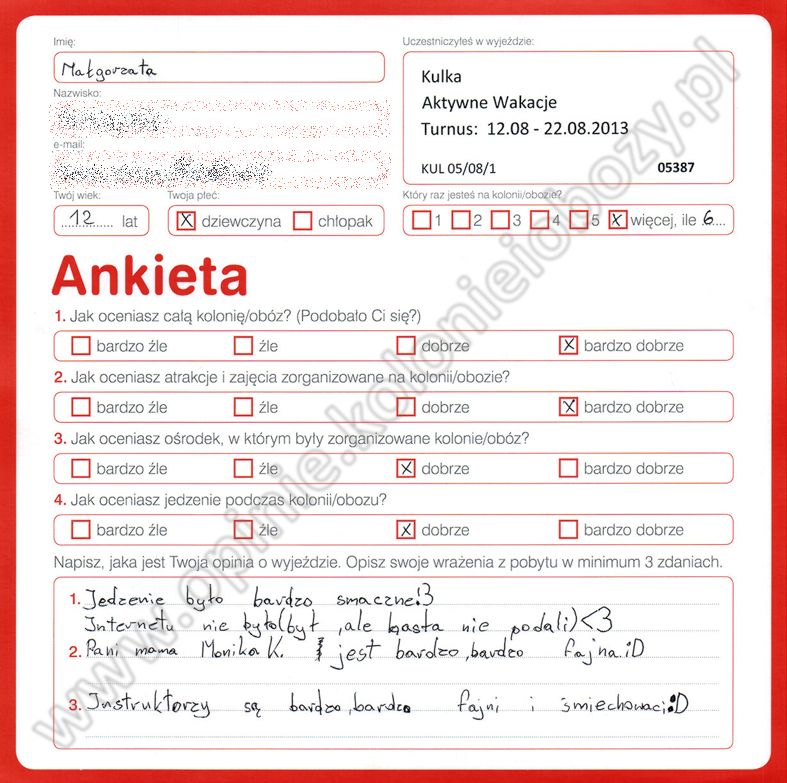 Imię:
Małgorzata
Nazwisko:
e-mail:
Twój wiek:
12 lat
Twoja płeć:
X dziewczyna chłopak
Uczestniczyłeś w wyjeździe:
Kulka
Aktywne Wakacje
Turnus: 12.08 - 22.08.2013
KUL 05/08/1 05387
Który raz jesteś na kolonii/obozie?
1 2 3 4 5 X więcej, ile 6
Ankieta
1. Jak oceniasz całą kolonię/obóz? (Podobało Ci się?)
bardzo źle źle dobrze X bardzo dobrze
2. Jak oceniasz atrakcje i zajęcia zorganizowane na kolonii/obozie?
bardzo źle źle dobrze X bardzo dobrze
3. Jak oceniasz ośrodek, w którym były zorganizowane kolonie/obóz?
bardzo źle źle X dobrze bardzo dobrze
4. Jak oceniasz jedzenie podczas kolonii/obozu?
bardzo źle źle X dobrze bardzo dobrze
Napisz, jaka jest Twoja opinia o wyjeździe. Opisz swoje wrażenia z pobytu w minimum 3 zdaniach.
1. Jedzenie było bardzo smaczne!3
Internetu nie było(był ,ale hasła nie podali)<3
2. Pani mama Monika K. jest bardzo,bardzo fajna.:D
3. Instruktorzy są bardzo,bardzo fajni i śmiechowaci:D
www.opinie.kolonieiobozy.pl